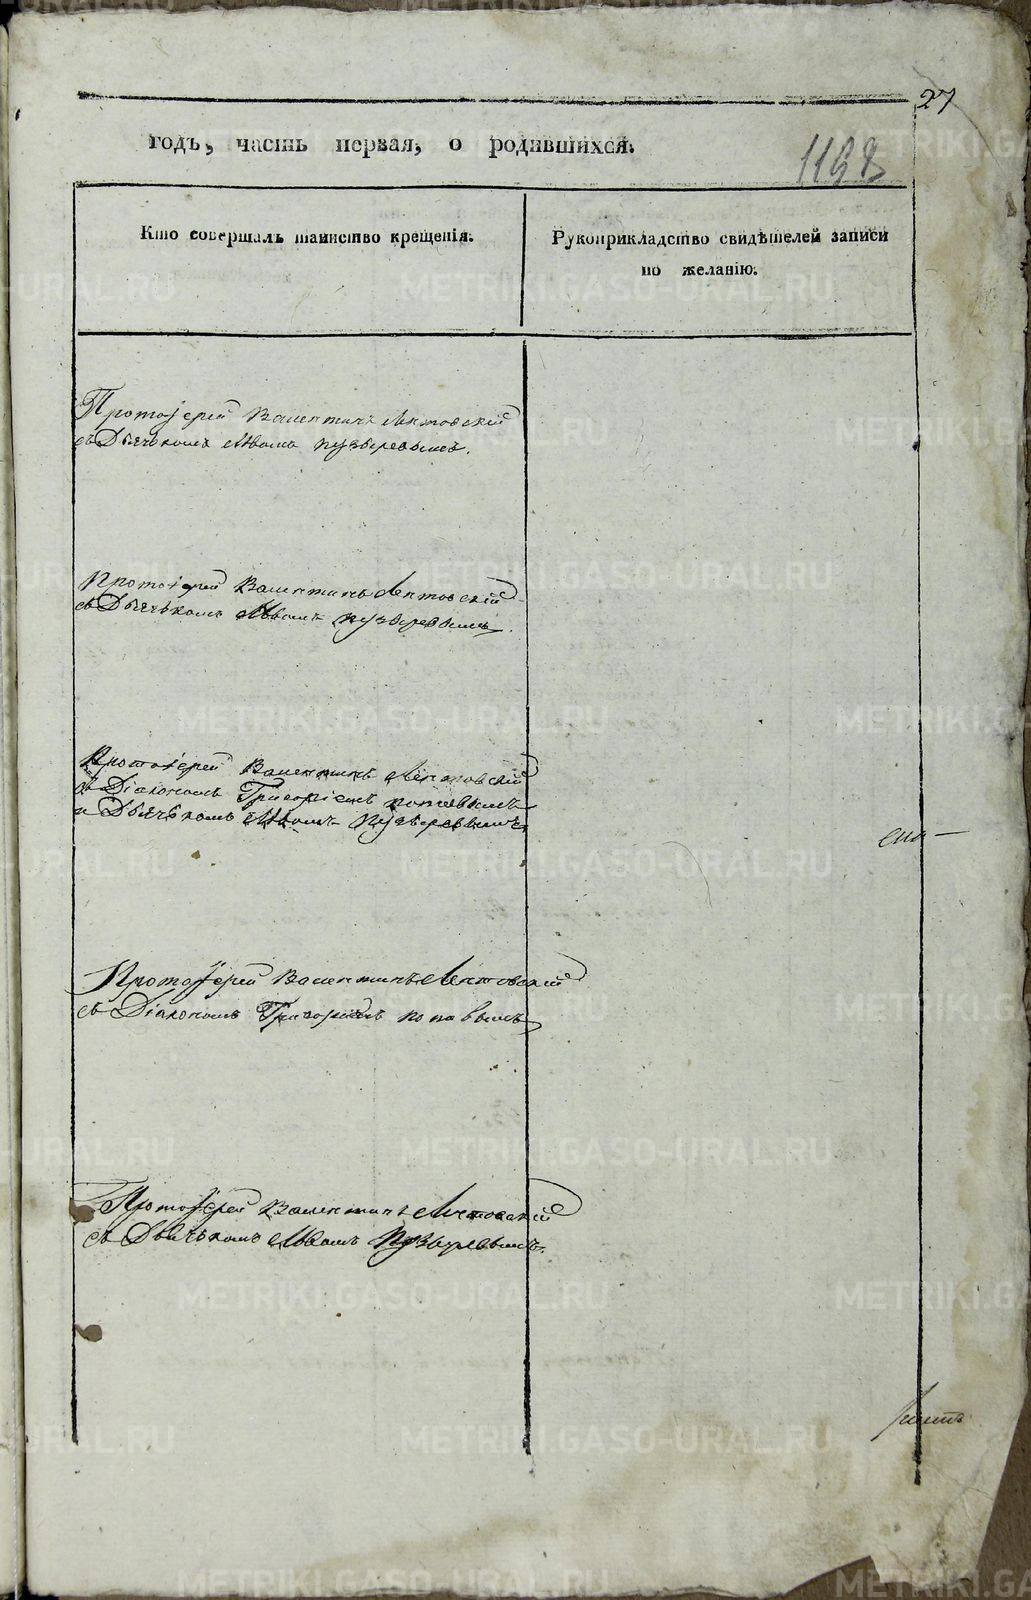 27
годъ, часть первая, о родившихся.
1198
Кто совершалъ таинство крещенія.
Рукоприкладство свидѣтелей записи
по желанію.
Протоіерей Валентинъ Лентовскій
съ Дьячькомъ Львомъ Пузыревымъ.
Протоіерей Валентинъ Лентовскій
съ Дьячькомъ Львомъ Пузыревымъ.
Протоіерей Валентинъ Лентовскій
съ Діакономъ Григоріемъ Поповымъ
и Дьячькомъ Львомъ Пузыревымъ
Протоіерей Валентинъ Лентовскій
съ Діакономъ Григоріемъ Поповымъ
Протоіерей Валентинъ Лентовскій
съ Дьячькомъ Львомъ Пузыревымъ.
METRIKI.GASO-URAL.RU